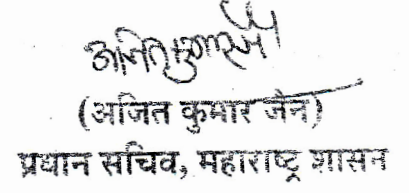 (अजित कुमार जैन)
प्रधान सचिव, महाराष्ट्र शासन